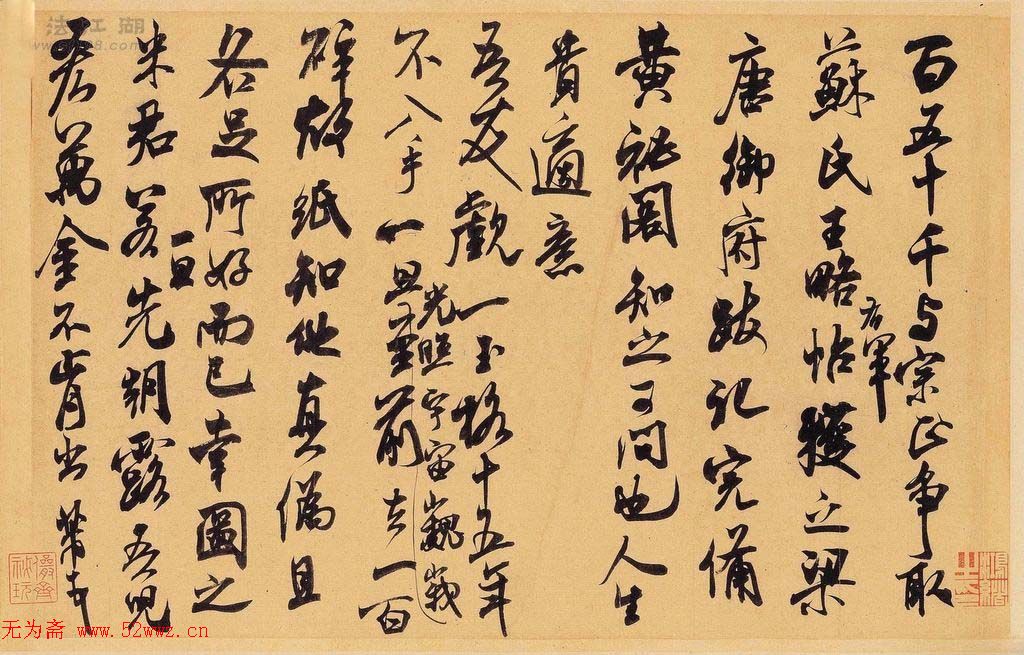 百五十千与宗正争取
蘇氏王略帖右軍獲之梁
唐御府跋記完備
黄祕閣知之可問也人生
貴適意
吾友覷一玉格十五年
不入手一旦光照宇宙巍峩至前去一百
碎故紙知他真偽且
各足所好而已幸圖之
米君若一旦先朝露吾兒
吝萬金不肯出芾頓首
法江湖
无为斋 www.52wwz.cn